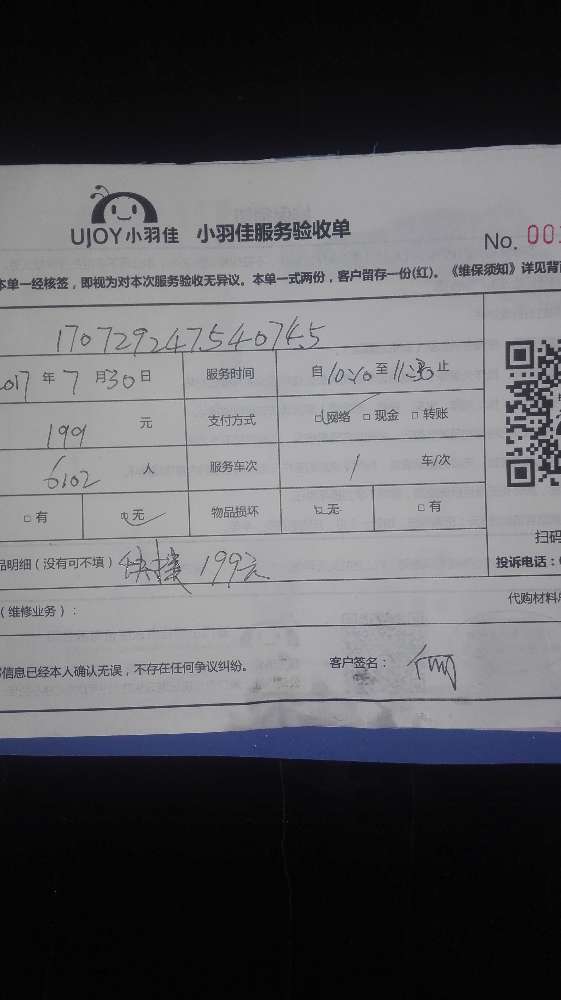 UJOY小羽佳 小羽佳服务验收单
No. 00
本单一经核签，即视为对本次服务验收无异议。本单一式两份，客户留存一份(红)。《维保须知》详见背
2017 年 7 月 30 日 服务时间 自 至 止
199 元 支付方式 网络 □ 现金 □ 转账
6102 人 服务车次 1 车/次
□ 有 无 物品损坏 □ 无 □ 有
扫码
品明细（没有可不填） 199元
投诉电话：
（维修业务）：
代购材料
信息已经本人确认无误，不存在任何争议纠纷。 客户签名： 何